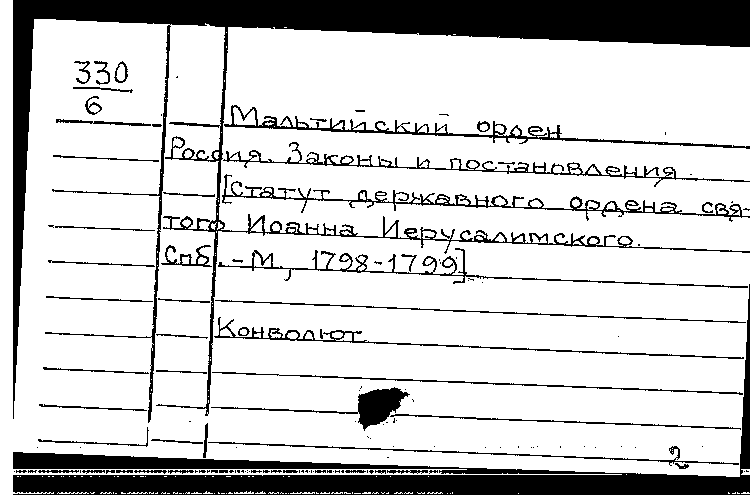 330
6
Мальтийский орден
Россия. Законы и постановления.
[Статут державного ордена свя-
того Иоанна Иерусалимского.
Спб. - М., 1798-1799]
Конволют
2